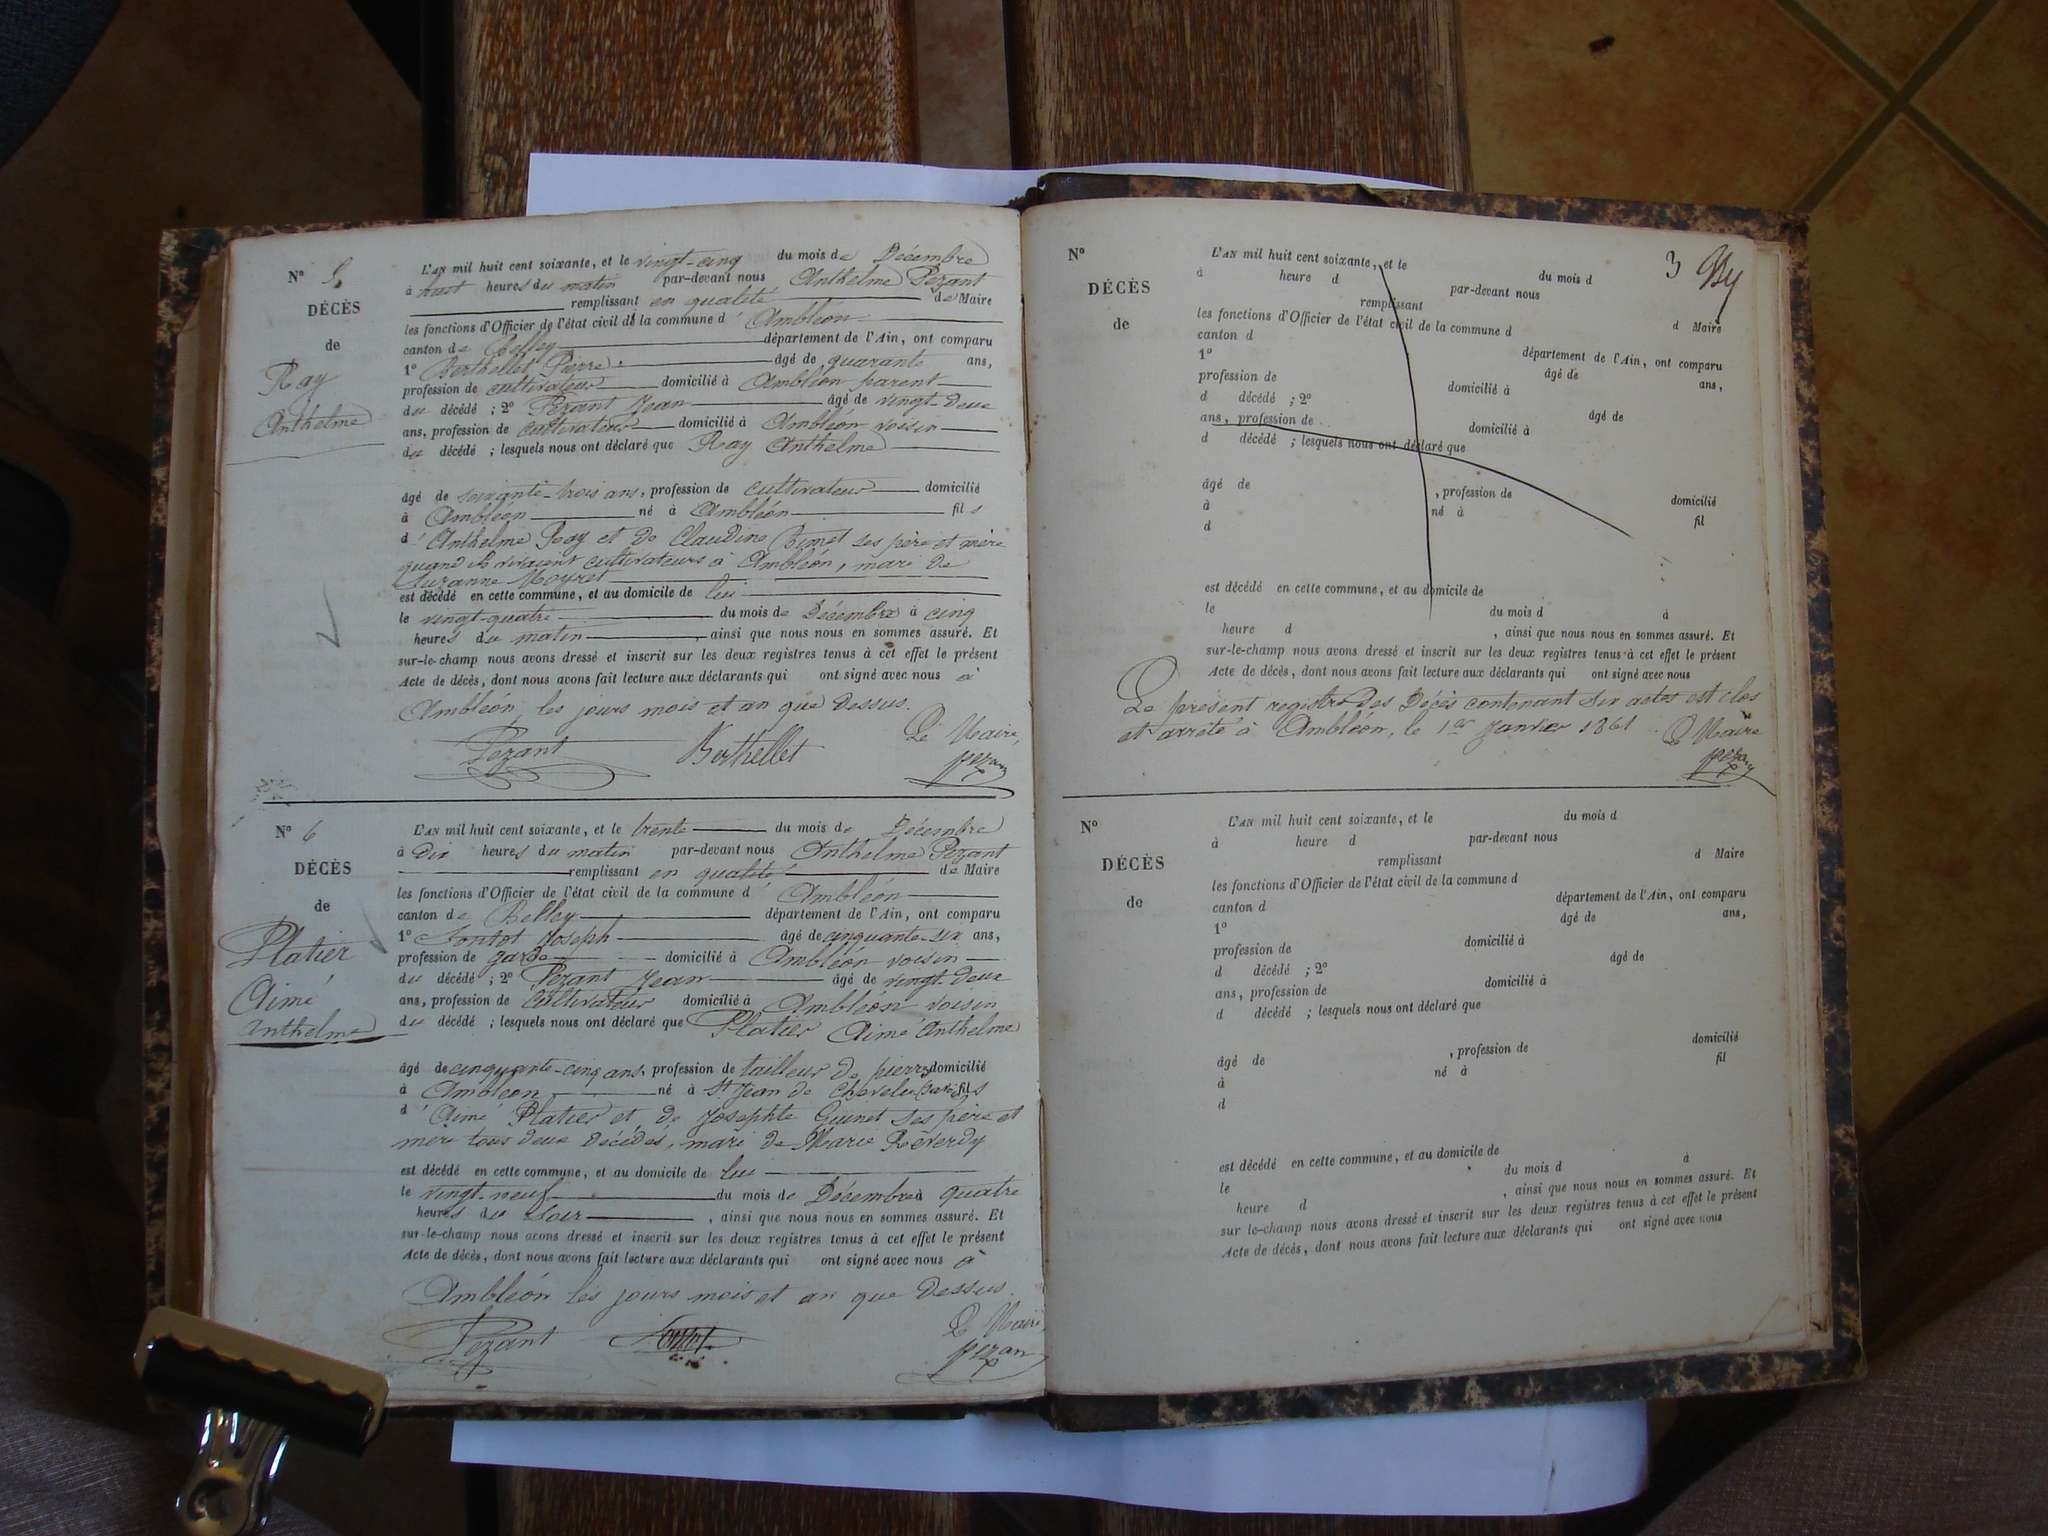 N° 5
DÉCÈS
de
Ray
Anthelme
L'AN mil huit cent soixante, et le vingt-cinq du mois de Décembre
à huit heures du matin par-devant nous Anthelme Pezant
remplissant en qualité de Maire
les fonctions d'Officier de l'état civil de la commune d' Ambléon
canton de Belley département de l'Ain, ont comparu
1° Berthellet Pierre âgé de quarante ans,
profession de cultivateur domicilié à Ambléon parent
du décédé ; 2° Pezant Jean âgé de vingt-deux
ans, profession de cultivateur domicilié à Ambléon voisin
du décédé ; lesquels nous ont déclaré que Ray Anthelme
âgé de soixante-trois ans, profession de cultivateur domicilié
à Ambléon né à Ambléon fils
d' Anthelme Ray et de Claudine ses père et mère
quand ils vivaient cultivateurs à Ambléon, mari de
Suzanne Moyret
est décédé en cette commune, et au domicile de lui
le vingt-quatre du mois de Décembre à cinq
heures du matin , ainsi que nous nous en sommes assuré. Et
sur-le-champ nous avons dressé et inscrit sur les deux registres tenus à cet effet le présent
Acte de décès, dont nous avons fait lecture aux déclarants qui ont signé avec nous à
Ambléon les jours mois et an que dessus.
Le Maire,
Pezant Berthellet Pezant
N° 6
DÉCÈS
de
Platier
Aimé
Anthelme
L'AN mil huit cent soixante, et le trente du mois de Décembre
à dix heures du matin par-devant nous Anthelme Pezant
remplissant en qualité de Maire
les fonctions d'Officier de l'état civil de la commune d' Ambléon
canton de Belley département de l'Ain, ont comparu
1° Joseph âgé de cinquante-six ans,
profession de garde domicilié à Ambléon voisin
du décédé ; 2° Pezant Jean âgé de vingt-deux
ans, profession de Cultivateur domicilié à Ambléon voisin
du décédé ; lesquels nous ont déclaré que Platier Aimé Anthelme
âgé de cinquante-cinq ans, profession de tailleur de pierre domicilié
à Ambléon né à St Jean de Chevelu fils
d' Aimé Platier et de Josephte Guinet ses père et
mère tous deux décédés, mari de Marie Reverdy
est décédé en cette commune, et au domicile de lui
le vingt-neuf du mois de Décembre à quatre
heures du soir , ainsi que nous nous en sommes assuré. Et
sur-le-champ nous avons dressé et inscrit sur les deux registres tenus à cet effet le présent
Acte de décès, dont nous avons fait lecture aux déclarants qui ont signé avec nous à
Ambléon les jours mois et an que dessus.
Le Maire,
Pezant Pezant
3
N°
DÉCÈS
de
L'AN mil huit cent soixante, et le du mois d
à heure d par-devant nous
remplissant d Maire
les fonctions d'Officier de l'état civil de la commune d
canton d département de l'Ain, ont comparu
1° âgé de ans,
profession de domicilié à
d décédé ; 2° âgé de
ans, profession de domicilié à
d décédé ; lesquels nous ont déclaré que
âgé de , profession de domicilié
à né à fil
d
est décédé en cette commune, et au domicile de
le du mois d à
heure d , ainsi que nous nous en sommes assuré. Et
sur-le-champ nous avons dressé et inscrit sur les deux registres tenus à cet effet le présent
Acte de décès, dont nous avons fait lecture aux déclarants qui ont signé avec nous
Le présent registre des Décès contenant six actes est clos
et arrêté à Ambléon, le 1er Janvier 1861 Le Maire
Pezant
N°
DÉCÈS
de
L'AN mil huit cent soixante, et le du mois d
à heure d par-devant nous
remplissant d Maire
les fonctions d'Officier de l'état civil de la commune d
canton d département de l'Ain, ont comparu
1° âgé de ans,
profession de domicilié à
d décédé ; 2° âgé de
ans, profession de domicilié à
d décédé ; lesquels nous ont déclaré que
âgé de , profession de domicilié
à né à fil
d
est décédé en cette commune, et au domicile de
le du mois d à
heure d , ainsi que nous nous en sommes assuré. Et
sur le-champ nous avons dressé et inscrit sur les deux registres tenus à cet effet le présent
Acte de décès, dont nous avons fait lecture aux déclarants qui ont signé avec nous